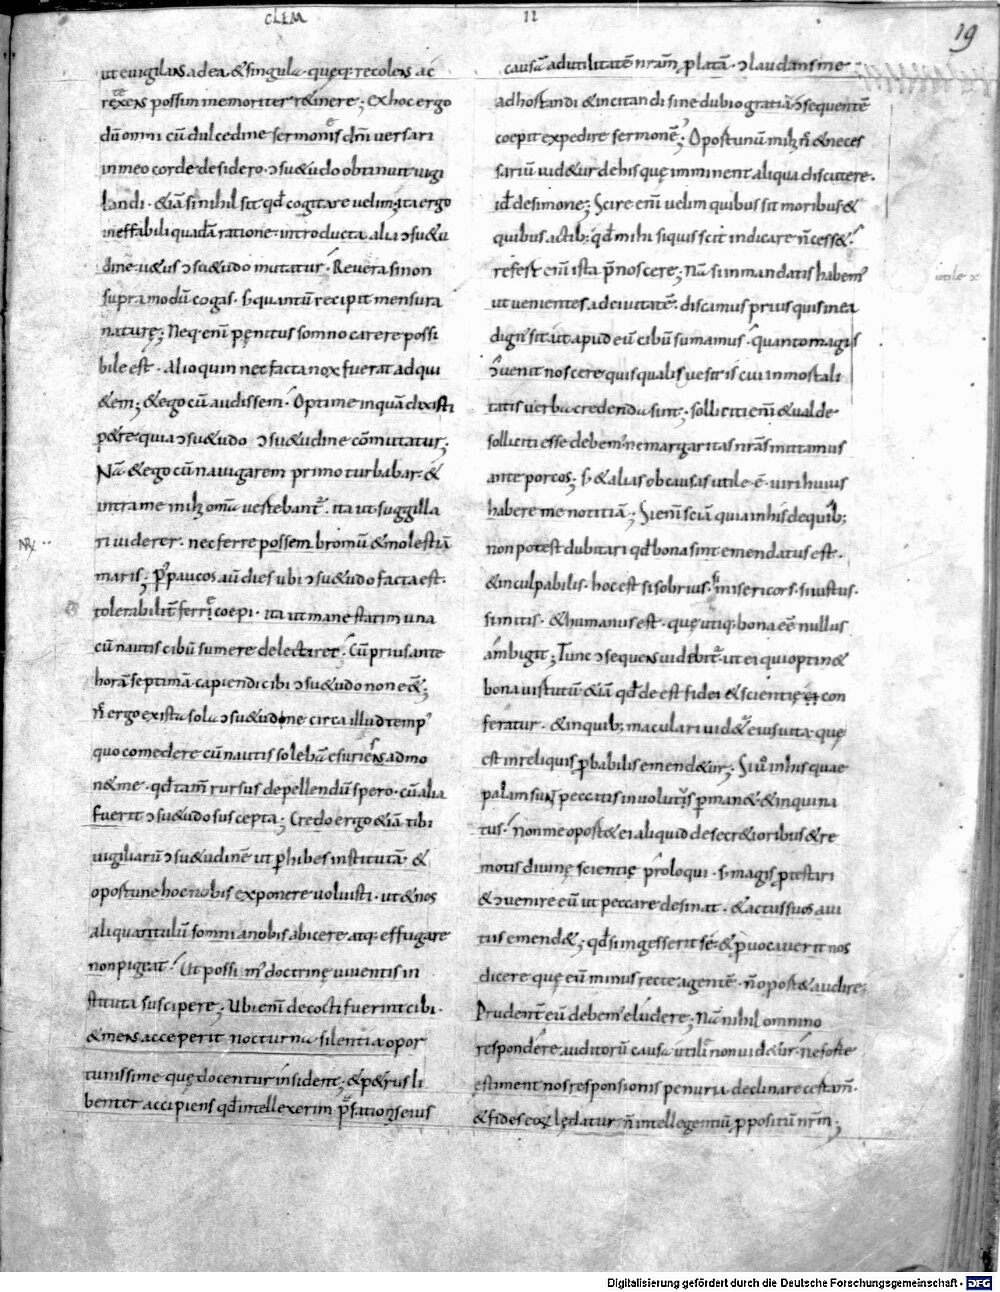 CLEM II
19
ut euigilans ad ea & singula quęq; recolens ac
retexens possim memoriter r&inere; Ex hoc ergo
dū omni cū dulcedine sermonis dn̄i uersari
in meo corde desidero. ɔsu&udo obtinuit uigi
landi. &iā si nihil sit qđ cogitare uelim; ita ergo
ineffabili quadā ratione introducta alia ɔsu&u
dine u&us ɔsu&udo mutatur. Reuera si non
supra modū cogas. s; quantū recipit mensura
naturę; Neq; enī pęnitus somno carere possi
bile est. Alioquin nec facta nox fuerat ad qui
&em; & ego cū audissem. Optime inquā dixisti
p&re quia ɔsu&udo ɔsu&udine cōmutatur;
Nā & ego cū nauigarem primo turbabar. &
intra me mihi omīa uertebant̄. ita ut suggilla
ri uiderer. nec ferre possem bromū & molestiā
maris; p' paucos aū dies ubi ɔsu&udo facta est.
tolerabilit̄ ferri coepi. ita ut mane statim una
cū nautis cibū sumere delectaret; Cū prius ante
horā septimā capiendi cibi ɔsu&udo non eēt;
ergo ex ista sola ɔsu&udine circa illud temp'
quo comedere cū nautis solebā esuriens admo
n&me. qđ tam̄ rursus depellendū spero. cū alia
fuerit ɔsu&udo suscepta; Credo ergo &iā tibi
uigiliarū ɔsu&udinē ut phibes institutā &
oportune hoc nobis exponere uoluisti. ut & nos
aliquantulū somni a nobis abicere atq; effugare
non pigeat. Ut possim' doctrinę uiuentis in
stituta suscipere; Ubi enī decocti fuerint cibi.
& mens acceperit nocturna silentia opor
tunissime quę docentur insident; & p&rus li
benter accipiens qđ intellexerim pfationis eius
causā ad utilitatē nrām platā. ɔlaudans me
adhortandi & incitandi sine dubio gratia ɔsequentē
coepit expedire sermonē; Oportunū mihi & neces
sariū uid&ur de his quę imminent aliqua discutere.
id de simone; Scire enī uelim quibus sit moribus &
quibus actib; qđ mihi siquis scit indicare n̄ cess&.
refert enī ista p̄noscere; Nā si in mandatis habem'
ut uenientes ad ciuitatē. discamus prius quis in ea
dign' sit. ut apud eū cibū sumamus. quanto magis
ɔuenit noscere quis qualisue sit is cui inmortali
tatis uerba credenda sunt. solliciti enī & ualde
solliciti esse debem' ne margaritas nrās mittamus
ante porcos; s; & alias ob causas utile ē. uiri huius
habere me notitiā; Si enī sciā quia in his de quib;
non potest dubitari qđ bona sint emendatus est.
& inculpabilis. hoc est si sobrius. si misericors. si iustus.
si mitis. & humanus est. quę utiq; bona eē nullus
ambigit; Tunc ɔsequens uidebit̄. ut ei qui optin&
bona uirtutū &iā qđ deest fidei & scientię con
feratur. & in quib; maculari uid& eius uita quę
est in reliquis pbabilis emend&ur; Siū in his quae
palam sunt peccatis inuolutus perman& & inquina
tus. non me oport& ei aliquid de secr&ioribus & re
motis diuinę scientię proloqui. s; magis ptestari
& ɔuenire eū ut peccare desinat. & actus suos a ui
tiis emend&; qđ si ingesserit se & puocauerit nos
dicere quę eū minus recte agentē n̄ oport& audire;
Prudent̄ eū debem' eludere; Nā nihil omnino
respondere auditorū causa utile non uid&ur. ne forte
ęstiment nos responsionis penuria declinare certam̄.
& fides eoꝝ lędatur n̄ intellegentiū ppositū nrm̄;
utile x
Digitalisierung gefördert durch die Deutsche Forschungsgemeinschaft - DFG